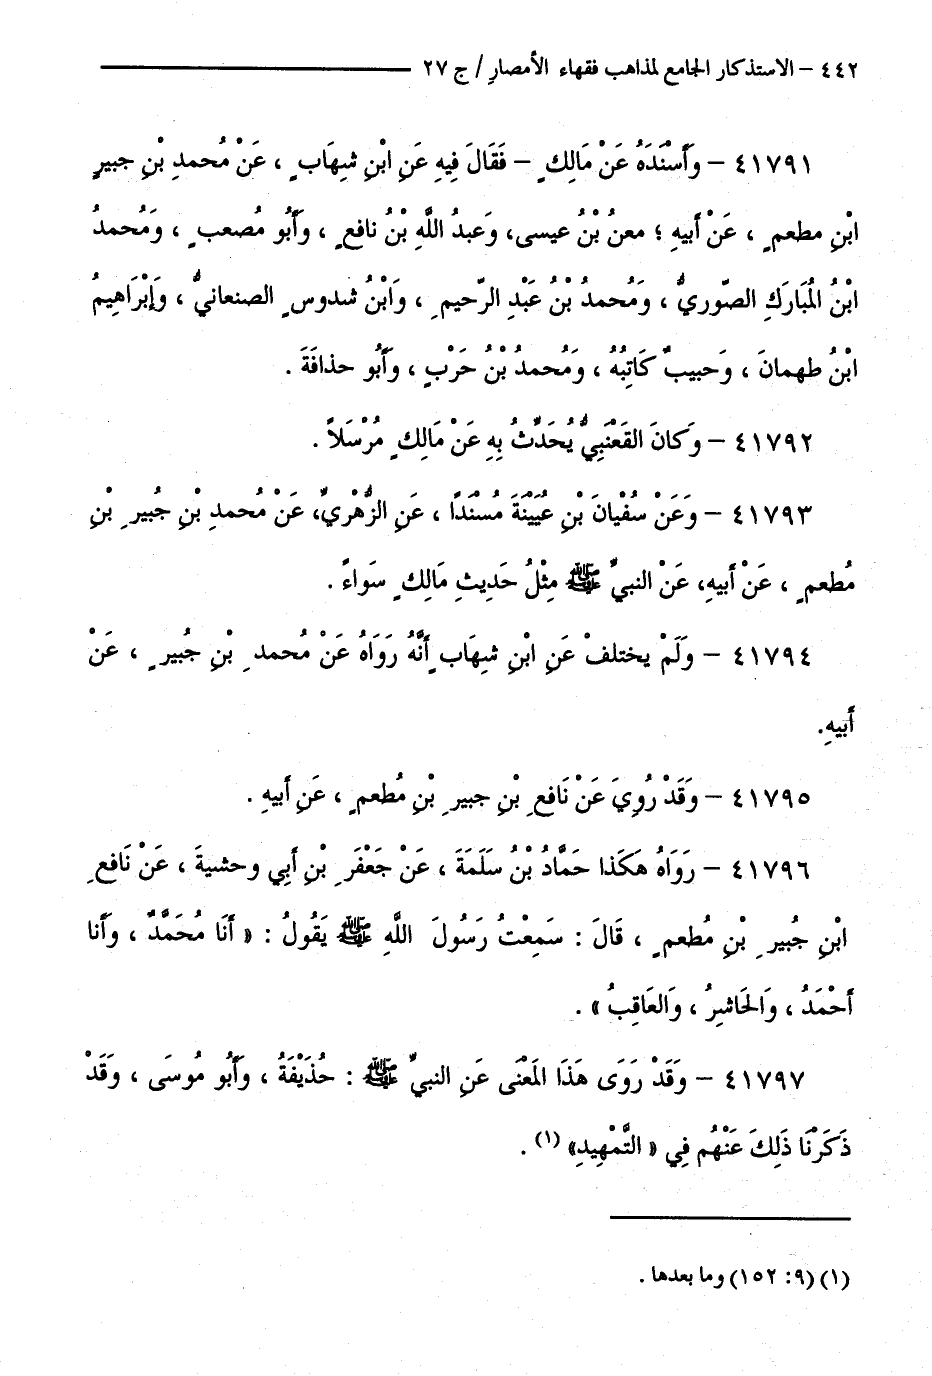 ٤٤٢ – الاستذكار الجامع لمذاهب فقهاء الأمصار / ج ٢٧
٤١٧٩١ – وَأَسْنَدَهُ عَنْ مَالِكٍ – فَقَالَ فِيهِ عَنِ ابْنِ شِهَابٍ ، عَنْ مُحمدِ بْنِ جبيرٍ
ابْنِ مطعمٍ ، عَنْ أَبيهِ ؛ معنُ بْنُ عيسى، وَعبدُ اللَّهِ بْنُ نافعٍ ، وَأَبُو مُصعبٍ ، وَمُحمدُ
ابْنُ المُبَارَكِ الصّوريُّ ، وَمُحمدُ بْنُ عَبْدِ الرّحيمِ ، وَابْنُ شدوسٍ الصنعانيُّ ، وَإِبْرَاهِيمُ
ابْنُ طهمانَ ، وَحبيبٌ كَاتِبُهُ ، وَمُحمدُ بْنُ حَرْبٍ ، وَأَبُو حذافَةَ .
٤١٧٩٢ – وَكانَ القَعْنَبِيُّ يُحَدِّثُ بِهِ عَنْ مَالِكٍ مُرْسَلاً .
٤١٧٩٣ – وَعَنْ سُفْيانَ بْنِ عُيَيْنَةَ مُسْنَدًا ، عَنِ الزُّهْرِيِّ، عَنْ مُحمدِ بْنِ جُبيرِ بْنِ
مُطعمٍ ، عَنْ أَبيهِ، عَنْ النبيِّ ﷺ مِثْلُ حَدِيثِ مَالِكٍ سَواءً .
٤١٧٩٤ – وَلَمْ يختلفْ عَنِ ابْنِ شِهَابٍ أَنَّهُ رَوَاهُ عَنْ مُحمدِ بْنِ جُبيرٍ ، عَنْ
أَبيهِ.
٤١٧٩٥ – وَقَدْ رُوِيَ عَنْ نَافعِ بْنِ جبيرِ بْنِ مُطعمٍ ، عَنِ أَبيهِ .
٤١٧٩٦ – رَوَاهُ هَكَذا حَمَّادُ بْنُ سَلَمَةَ ، عَنْ جَعْفَرِ بْنِ أَبِي وحشيةَ ، عَنْ نَافعِ
ابْنِ جُبيرِ بْنِ مُطعمٍ ، قَالَ : سَمِعْتُ رَسُولَ اللَّهِ ﷺ يَقُولُ : « أَنَا مُحَمَّدٌ ، وَأَنا
أَحْمَدُ ، وَالحَاشِرُ ، وَالعَاقِبُ » .
٤١٧٩٧ – وَقَدْ رَوَى هَذَا المَعْنَى عَنِ النبيِّ ﷺ : حُذَيْفَةُ ، وَأَبُو مُوسَى ، وَقَدْ
ذَكَرْنَا ذَلِكَ عَنْهُم فِي « التَّمْهِيدِ» (١) .
(١) (٩: ١٥٢) وما بعدها .